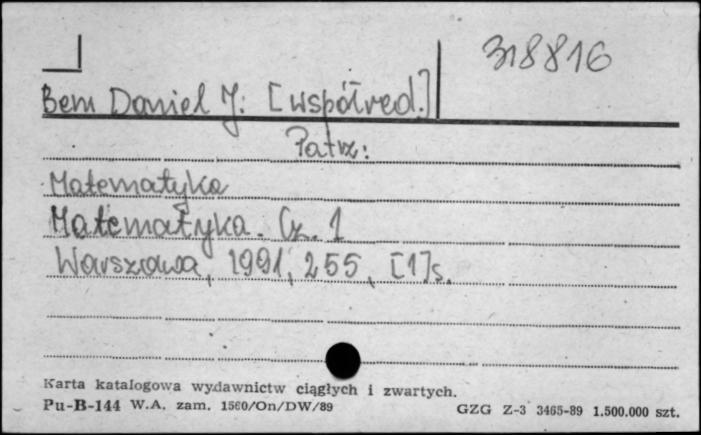 318816
Bem Daniel J. [współred.]
Patrz:
Matematyka
Matematyka. Cz. 1
Warszawa, 1991, 255, [1]s.
Karta katalogowa wydawnictw ciągłych i zwartych.
Pu-B-144 W.A. zam. 1560/On/DW/89 GZG Z-3 3465-89 1.500.000 szt.